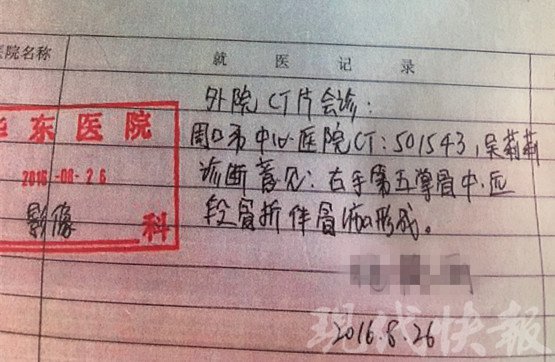 医院名称
就医记录
外院CT片会诊:
周口市中心医院CT:501543,吴莉莉
华东医院
2016-08-26
影像 科
诊断意见:右手第五掌骨中.远
段骨折伴骨痂形成。
2016.8.26
现代快报